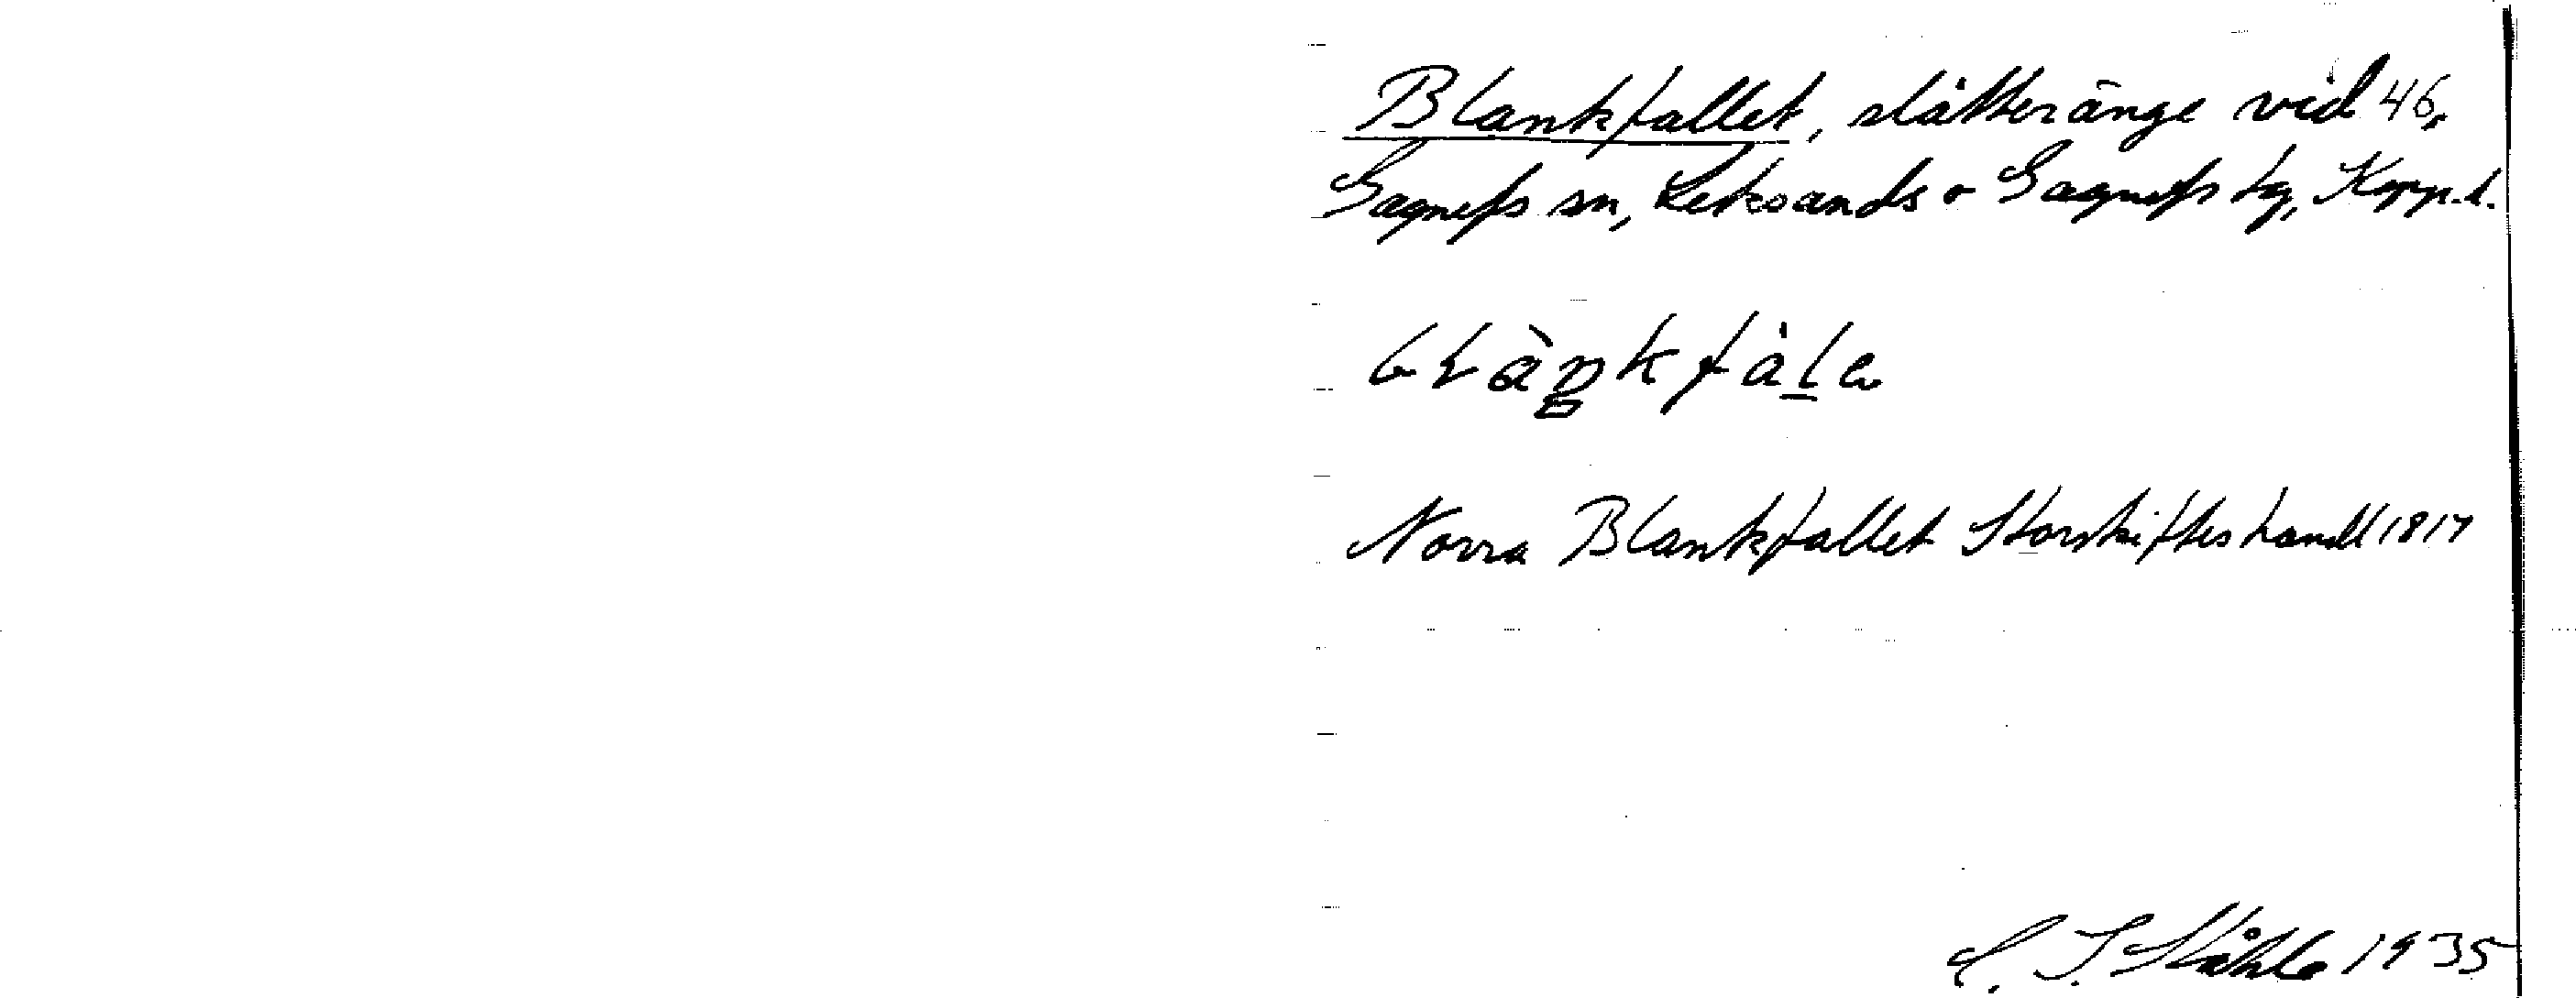 Blankfallet, slåtteränge vid 46,
Gagnefs sn, Leksands o Gagnefs tg, Kopp. l.
Norra Blankfallet Storskifteshandl 1817
C. I. Ståhle 1935